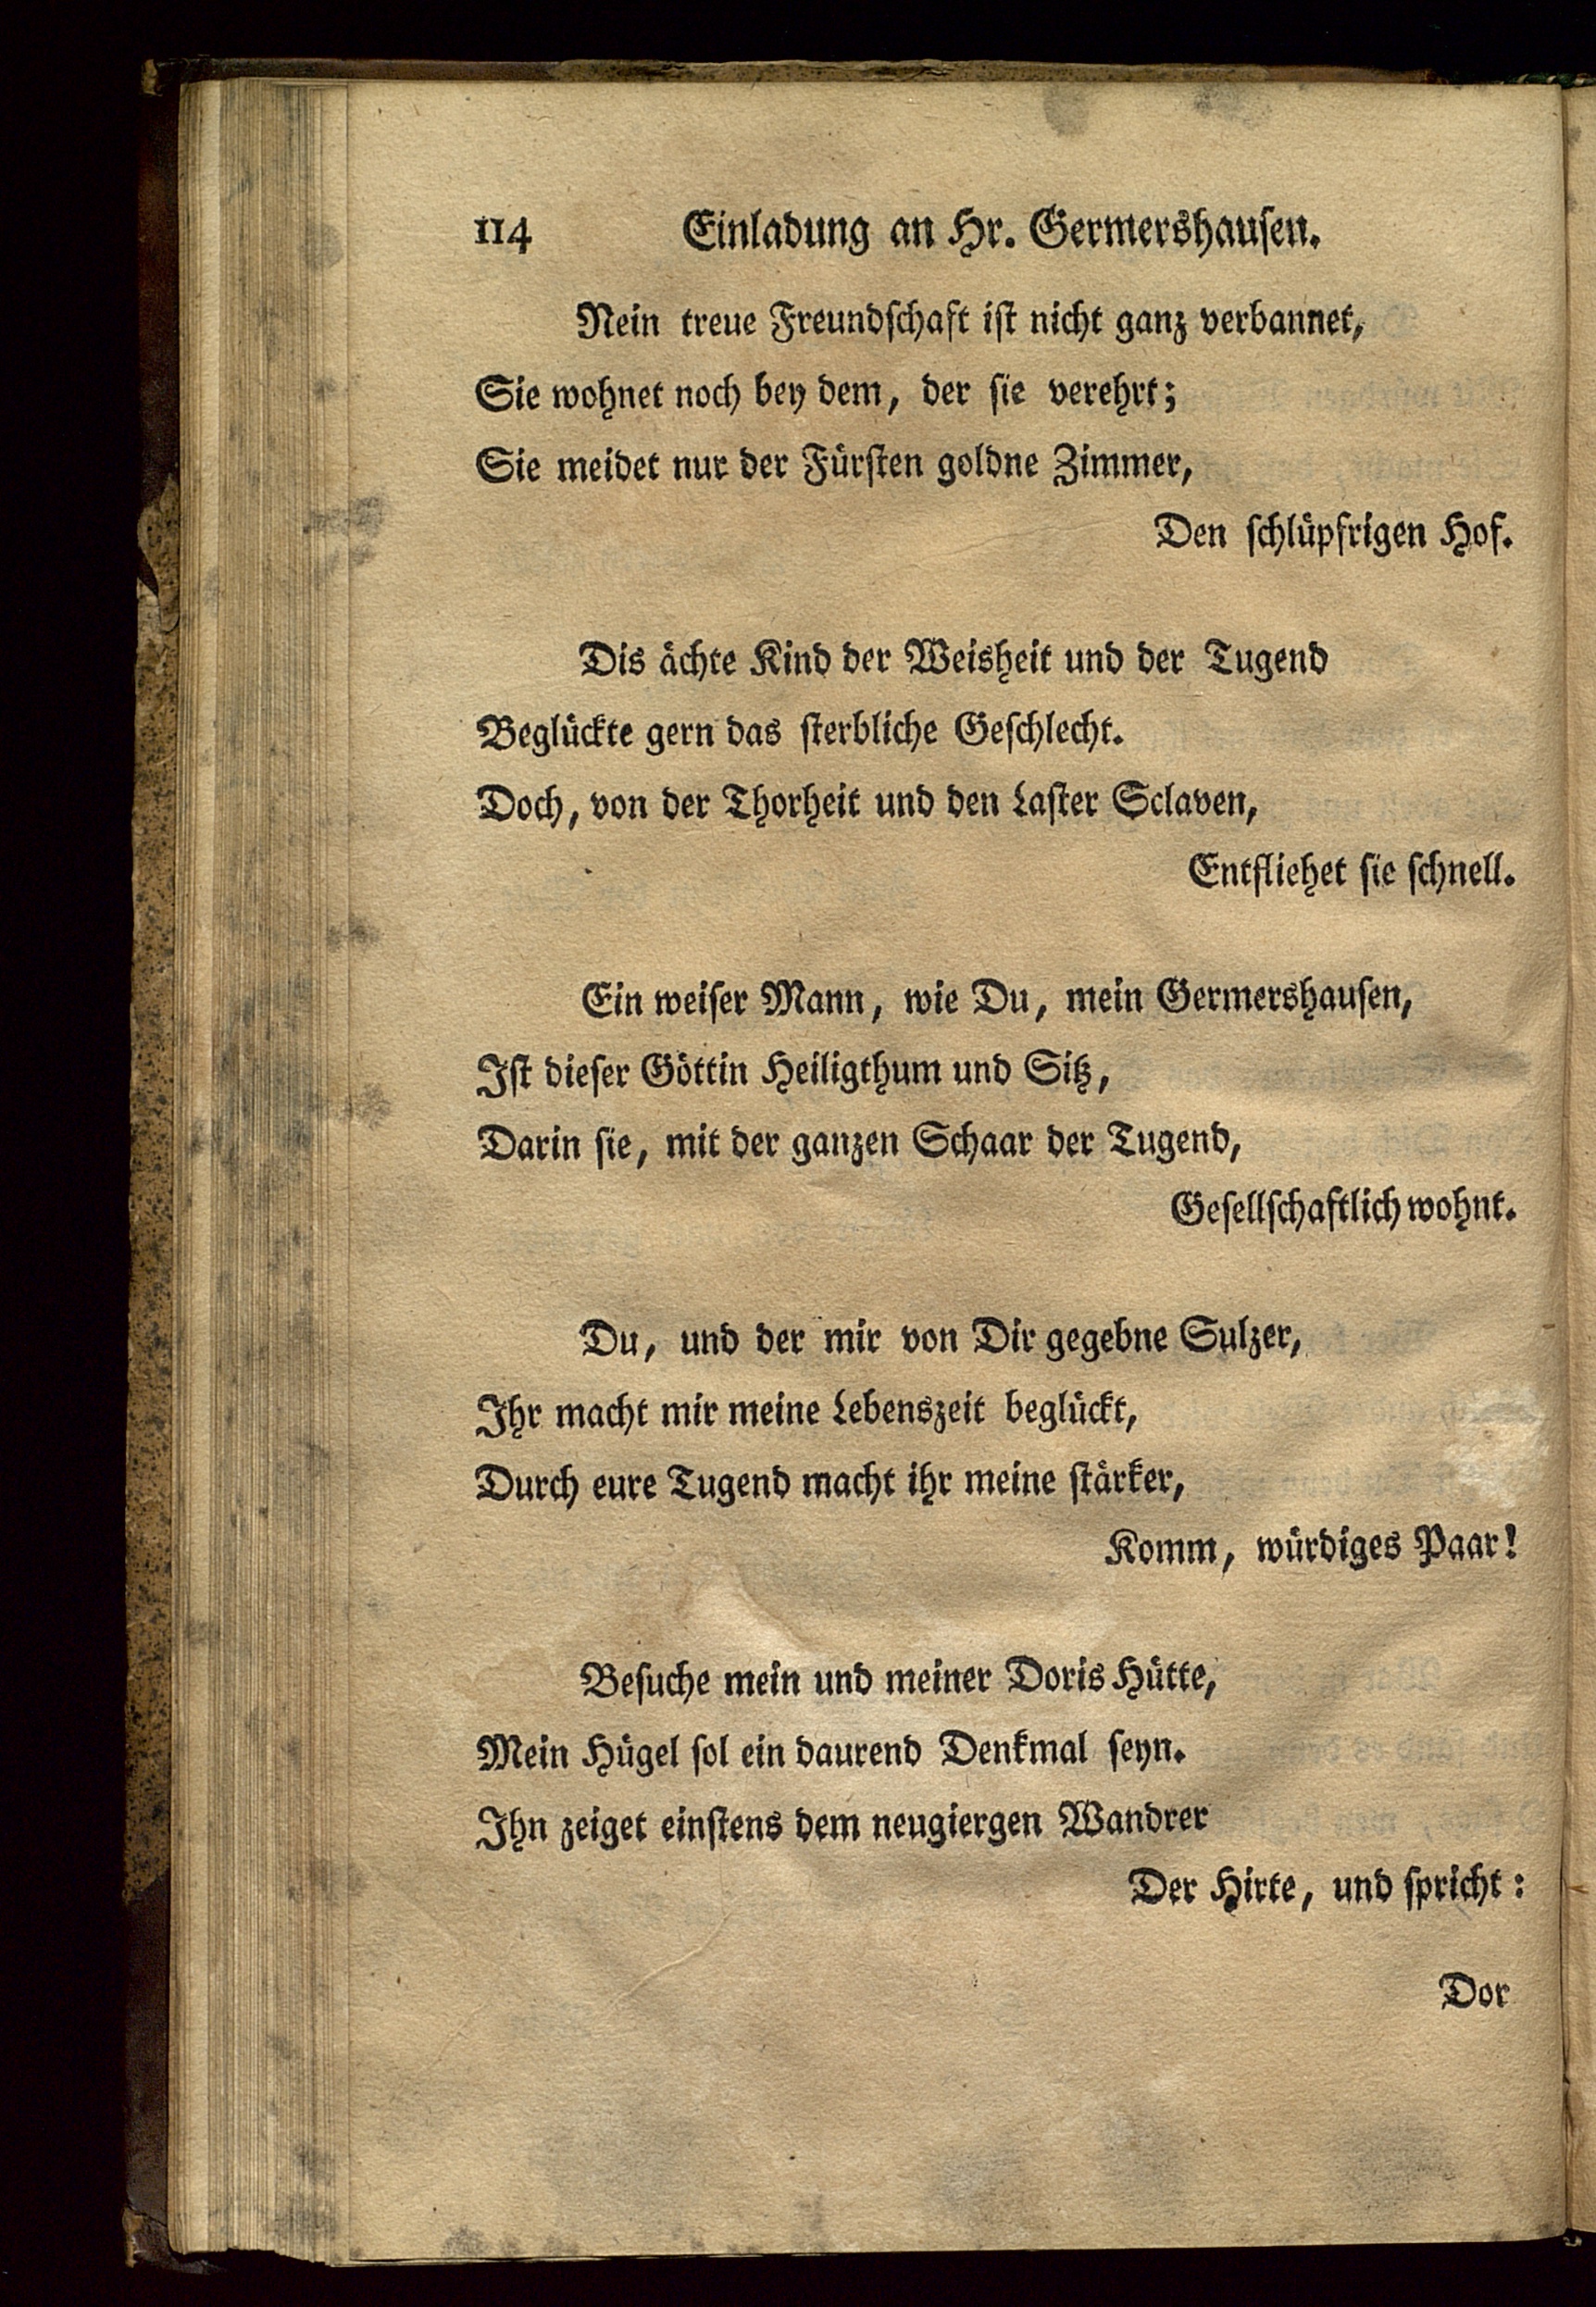 114 Einladung an Hr. Germershausen.
Nein treue Freundschaft ist nicht ganz verbannet,
Sie wohnet noch bey dem, der sie verehrt;
Sie meidet nur der Fürsten goldne Zimmer,
Den schlüpfrigen Hof.
Dis ächte Kind der Weisheit und der Tugend
Beglückte gern das sterbliche Geschlecht.
Doch, von der Thorheit und den Laster Sclaven,
Entfliehet sie schnell.
Ein weiser Mann, wie Du, mein Germershausen,
Ist dieser Göttin Heiligthum und Sitz,
Darin sie, mit der ganzen Schaar der Tugend,
Gesellschaftlich wohnt.
Du, und der mir von Dir gegebne Sulzer,
Ihr macht mir meine Lebenszeit beglückt,
Durch eure Tugend macht ihr meine stärker,
Komm, würdiges Paar!
Besuche mein und meiner Doris Hütte,
Mein Hügel sol ein daurend Denkmal seyn.
Ihn zeiget einstens dem neugiergen Wandrer
Der Hirte, und spricht:
Dor